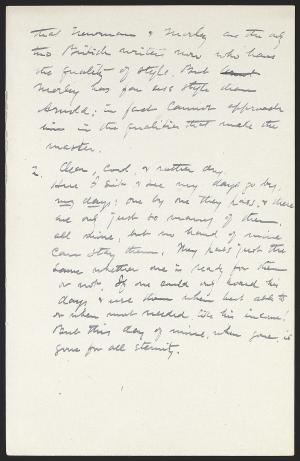 that Newman & Morley are the only
two British writers now who have
the quality of style. But
Morley has far less style than
Arnold; in fact cannot approach
him in the qualities that make the
master.
2. Clear, cool, & rather dry.
Here I sit & see my days go by,
my days; one by one they pass, & there
are only just so many of them,
all divine, but no hand of mine
can stay them. They pass just the
same whether one is ready for them
or not. If one could only hoard his
days & use them when best able to
or when most needed, like his income!
But this day of mine, when gone, is
gone for all eternity.